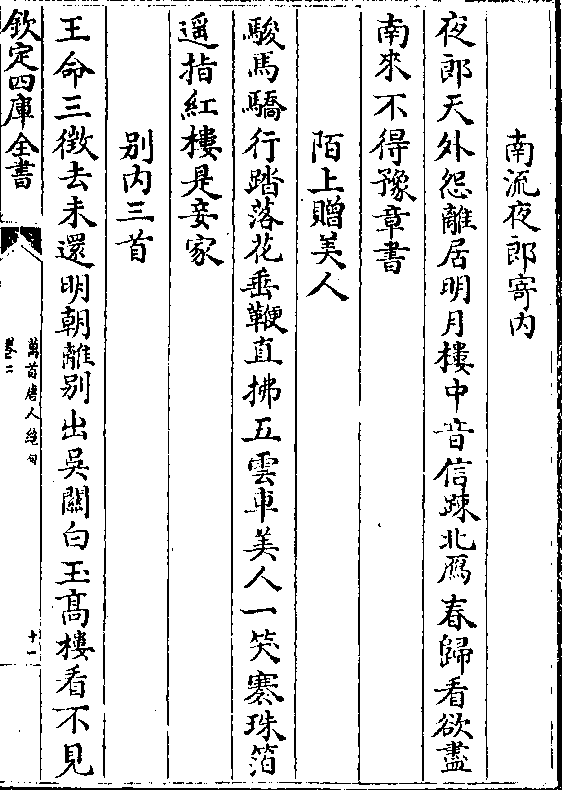 南流夜郎寄内
夜郎天外怨離居明月樓中音信踈北鴈春歸看欲盡
南來不得豫章書
陌上贈美人
駿馬驕行踏落花垂鞭直拂五雲車美人一笑褰珠箔
遥指紅樓是妾家
别内三首
王命三徴去未還明朝離别出吳關白玉髙樓看不見
欽定四庫全書
萬首唐人絶句
卷二
十一